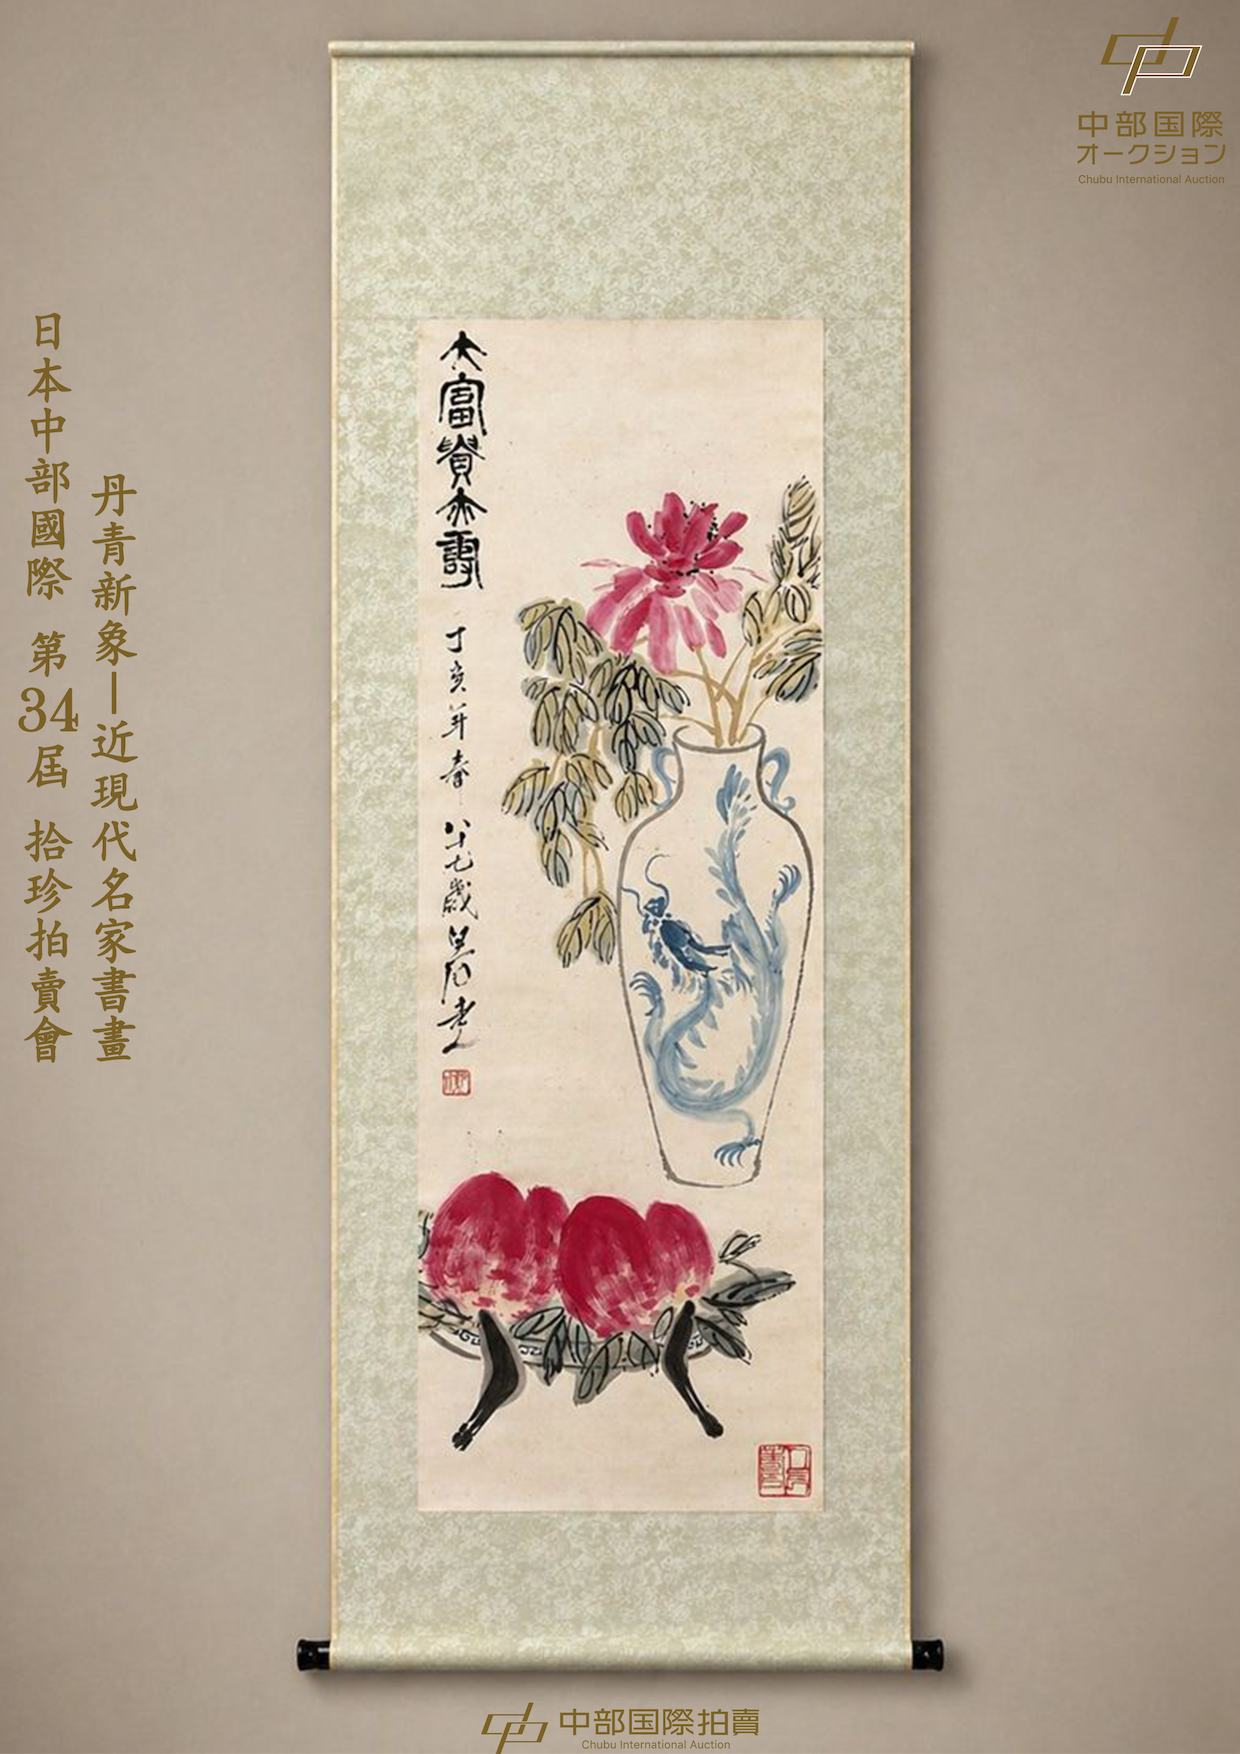 中部国際
オークション
Chubu International Auction
日本中部國際 第34屆 拾珍拍賣會
丹青新象—近現代名家書畫
大富貴亦壽
丁亥年春 八十七歲 白石老人
中部国際拍賣
Chubu International Auction